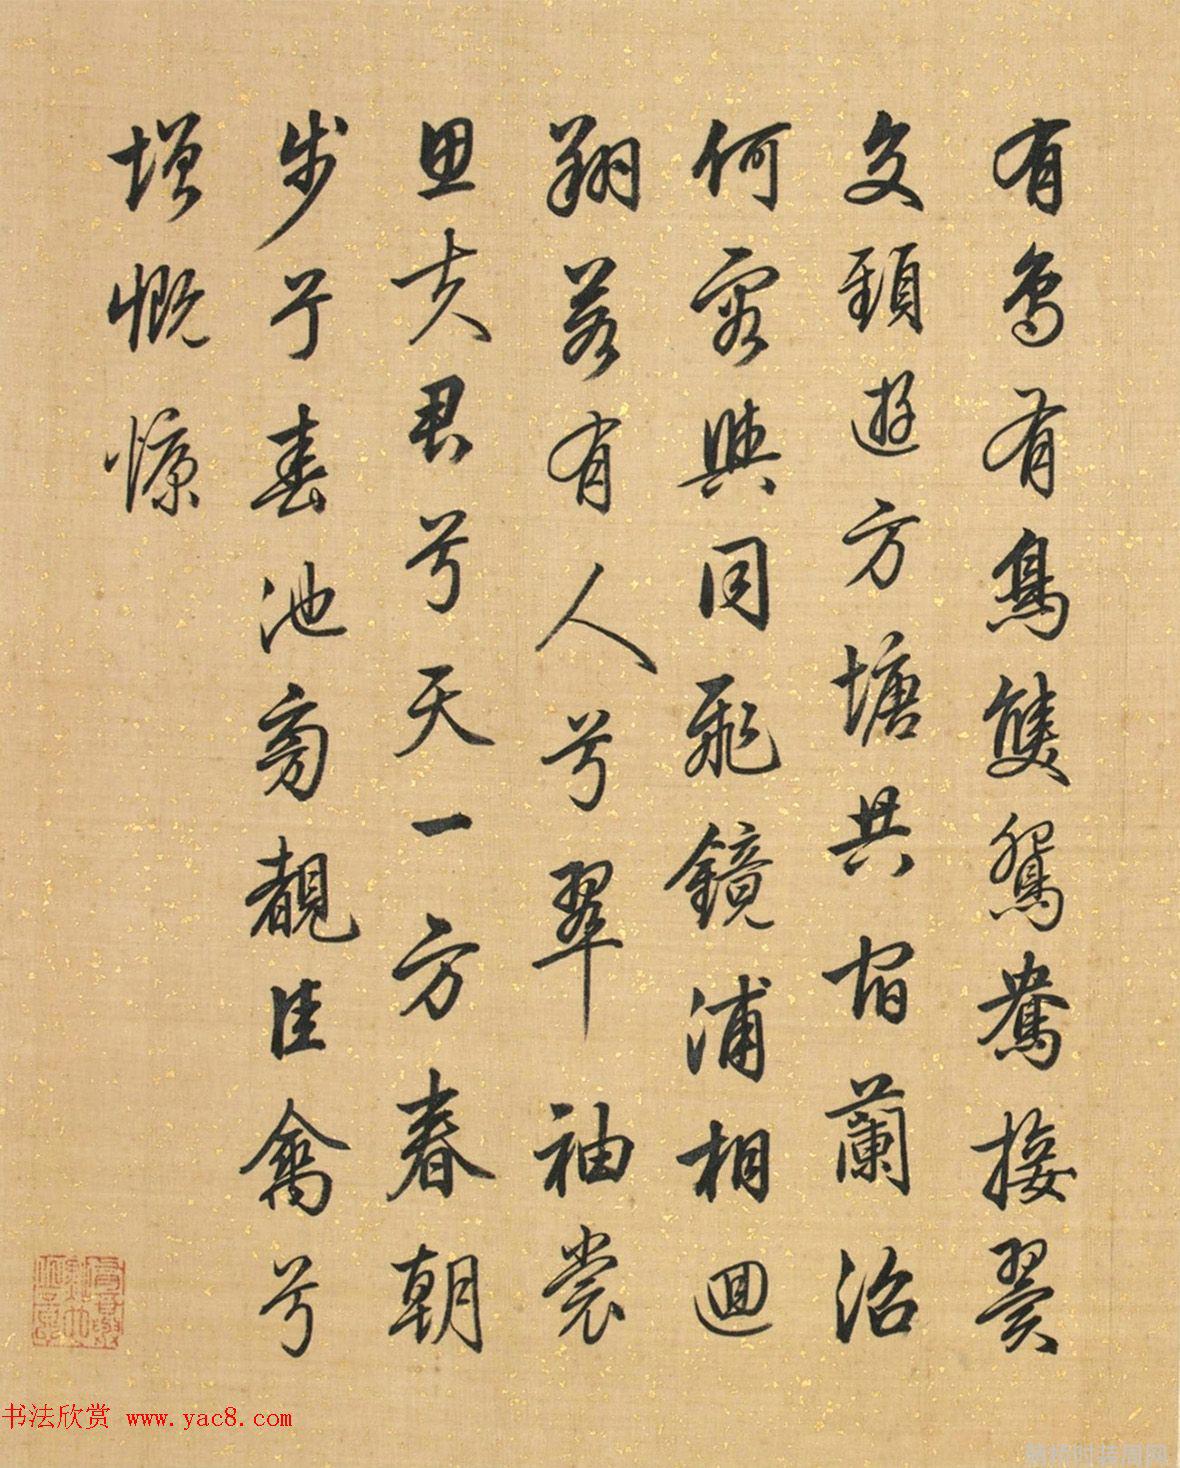 有鳥有鳥雙鴛鴦接翼
交頸遊方塘共宿蘭沼
何容與同飛鏡浦相迴
翔若有人兮翠袖裳
思夫君兮天一方春朝
步于春池旁覩佳禽兮
增慨慷
书法欣赏 www.yac8.com